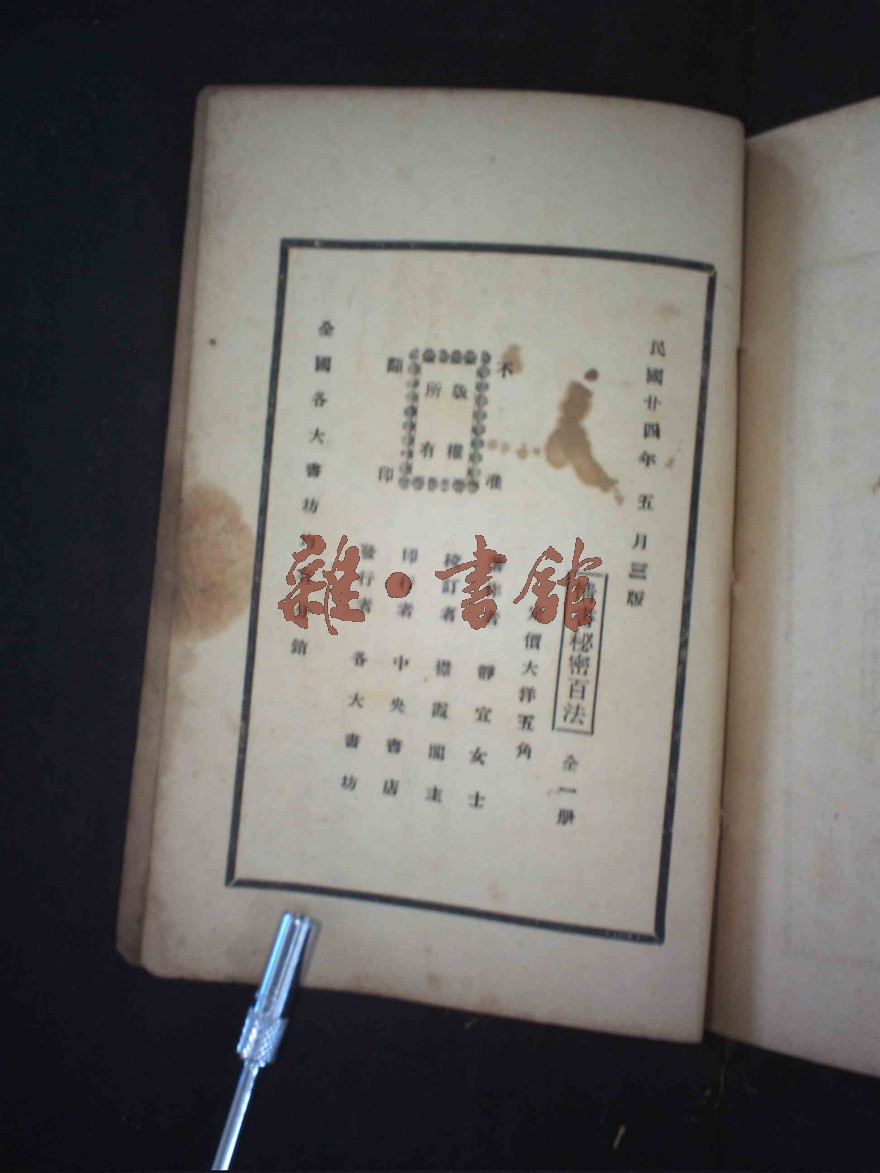 民國廿四年五月三版
秘密百法 全一册
定價大洋五角
靜宜女士
校訂者 襟霞閣主
印行者 中央書店
發行者 各大書坊
不准翻印
版權所有
全國各大書坊
雜·書館